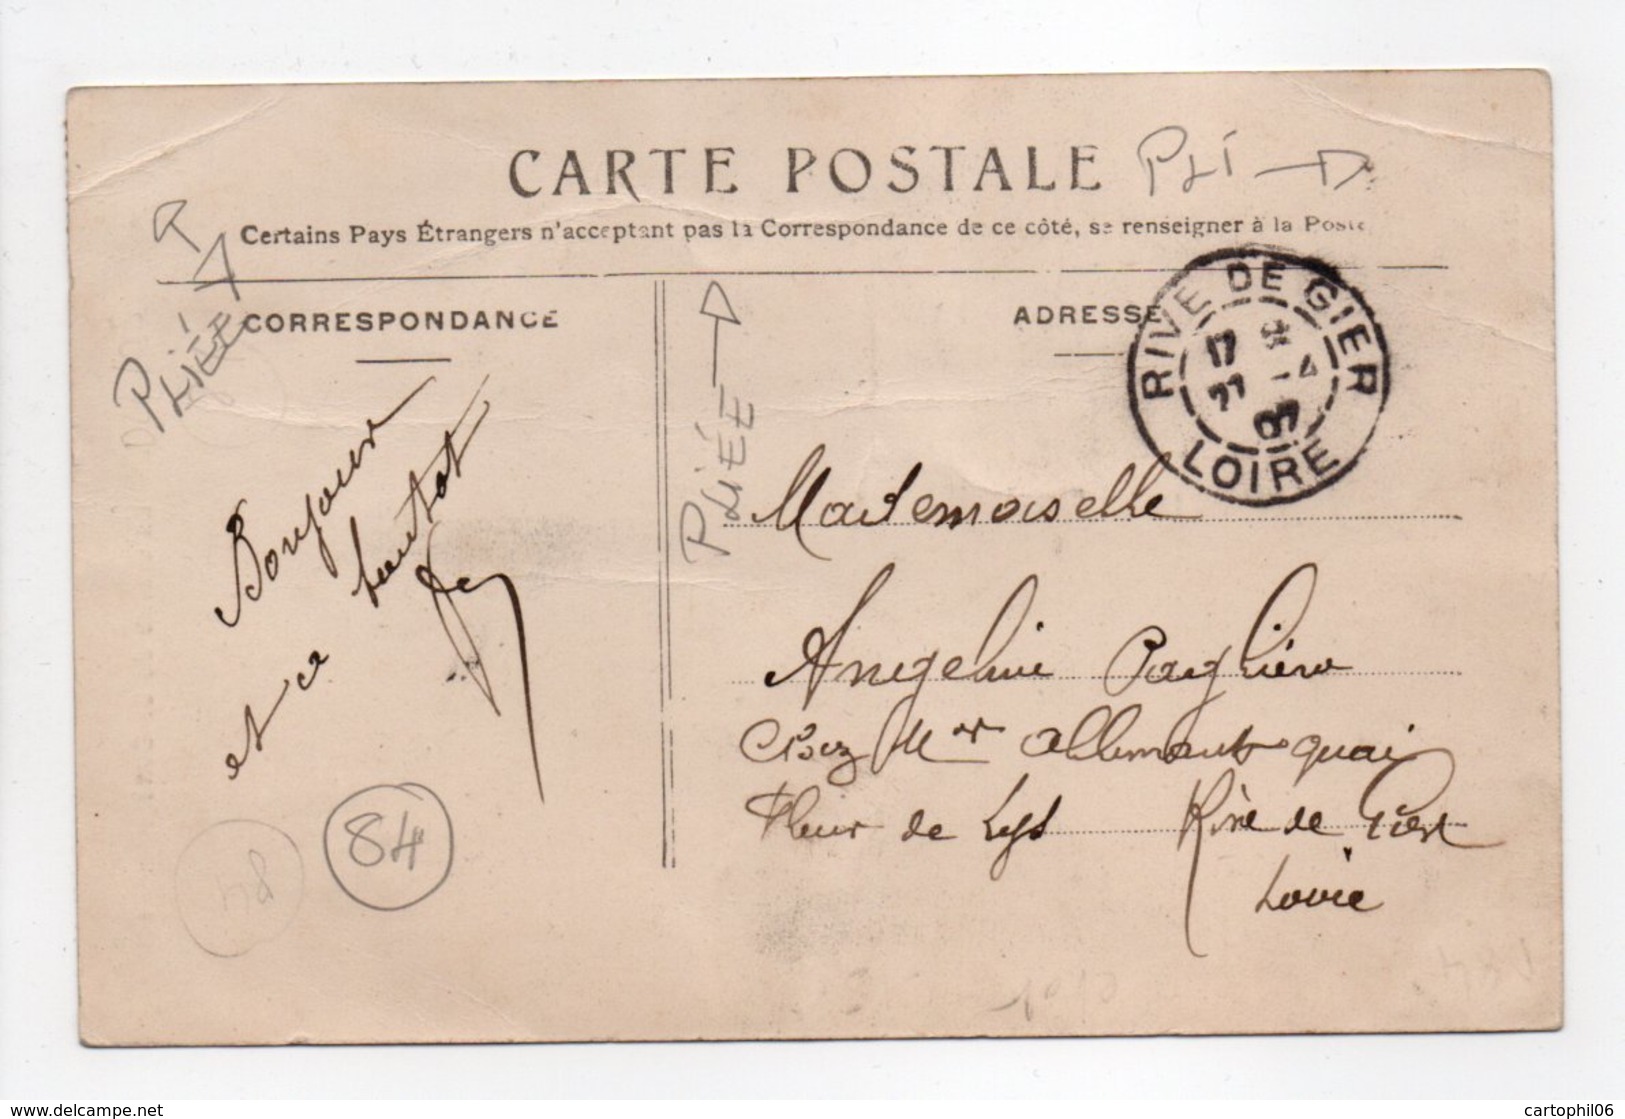 CARTE POSTALE
PLI
Certains Pays Étrangers n'acceptant pas la Correspondance de ce côté, se renseigner à la Poste
CORRESPONDANCE
PLIÉE
Bonjour
et a
PLIÉE
ADRESSE
RIVE DE GIER
17
LOIRE
Mademoiselle
Angeline
chez Mr allemand quai
Fleur de Lys Rive de Gier
Loire
84
84
cartophil06